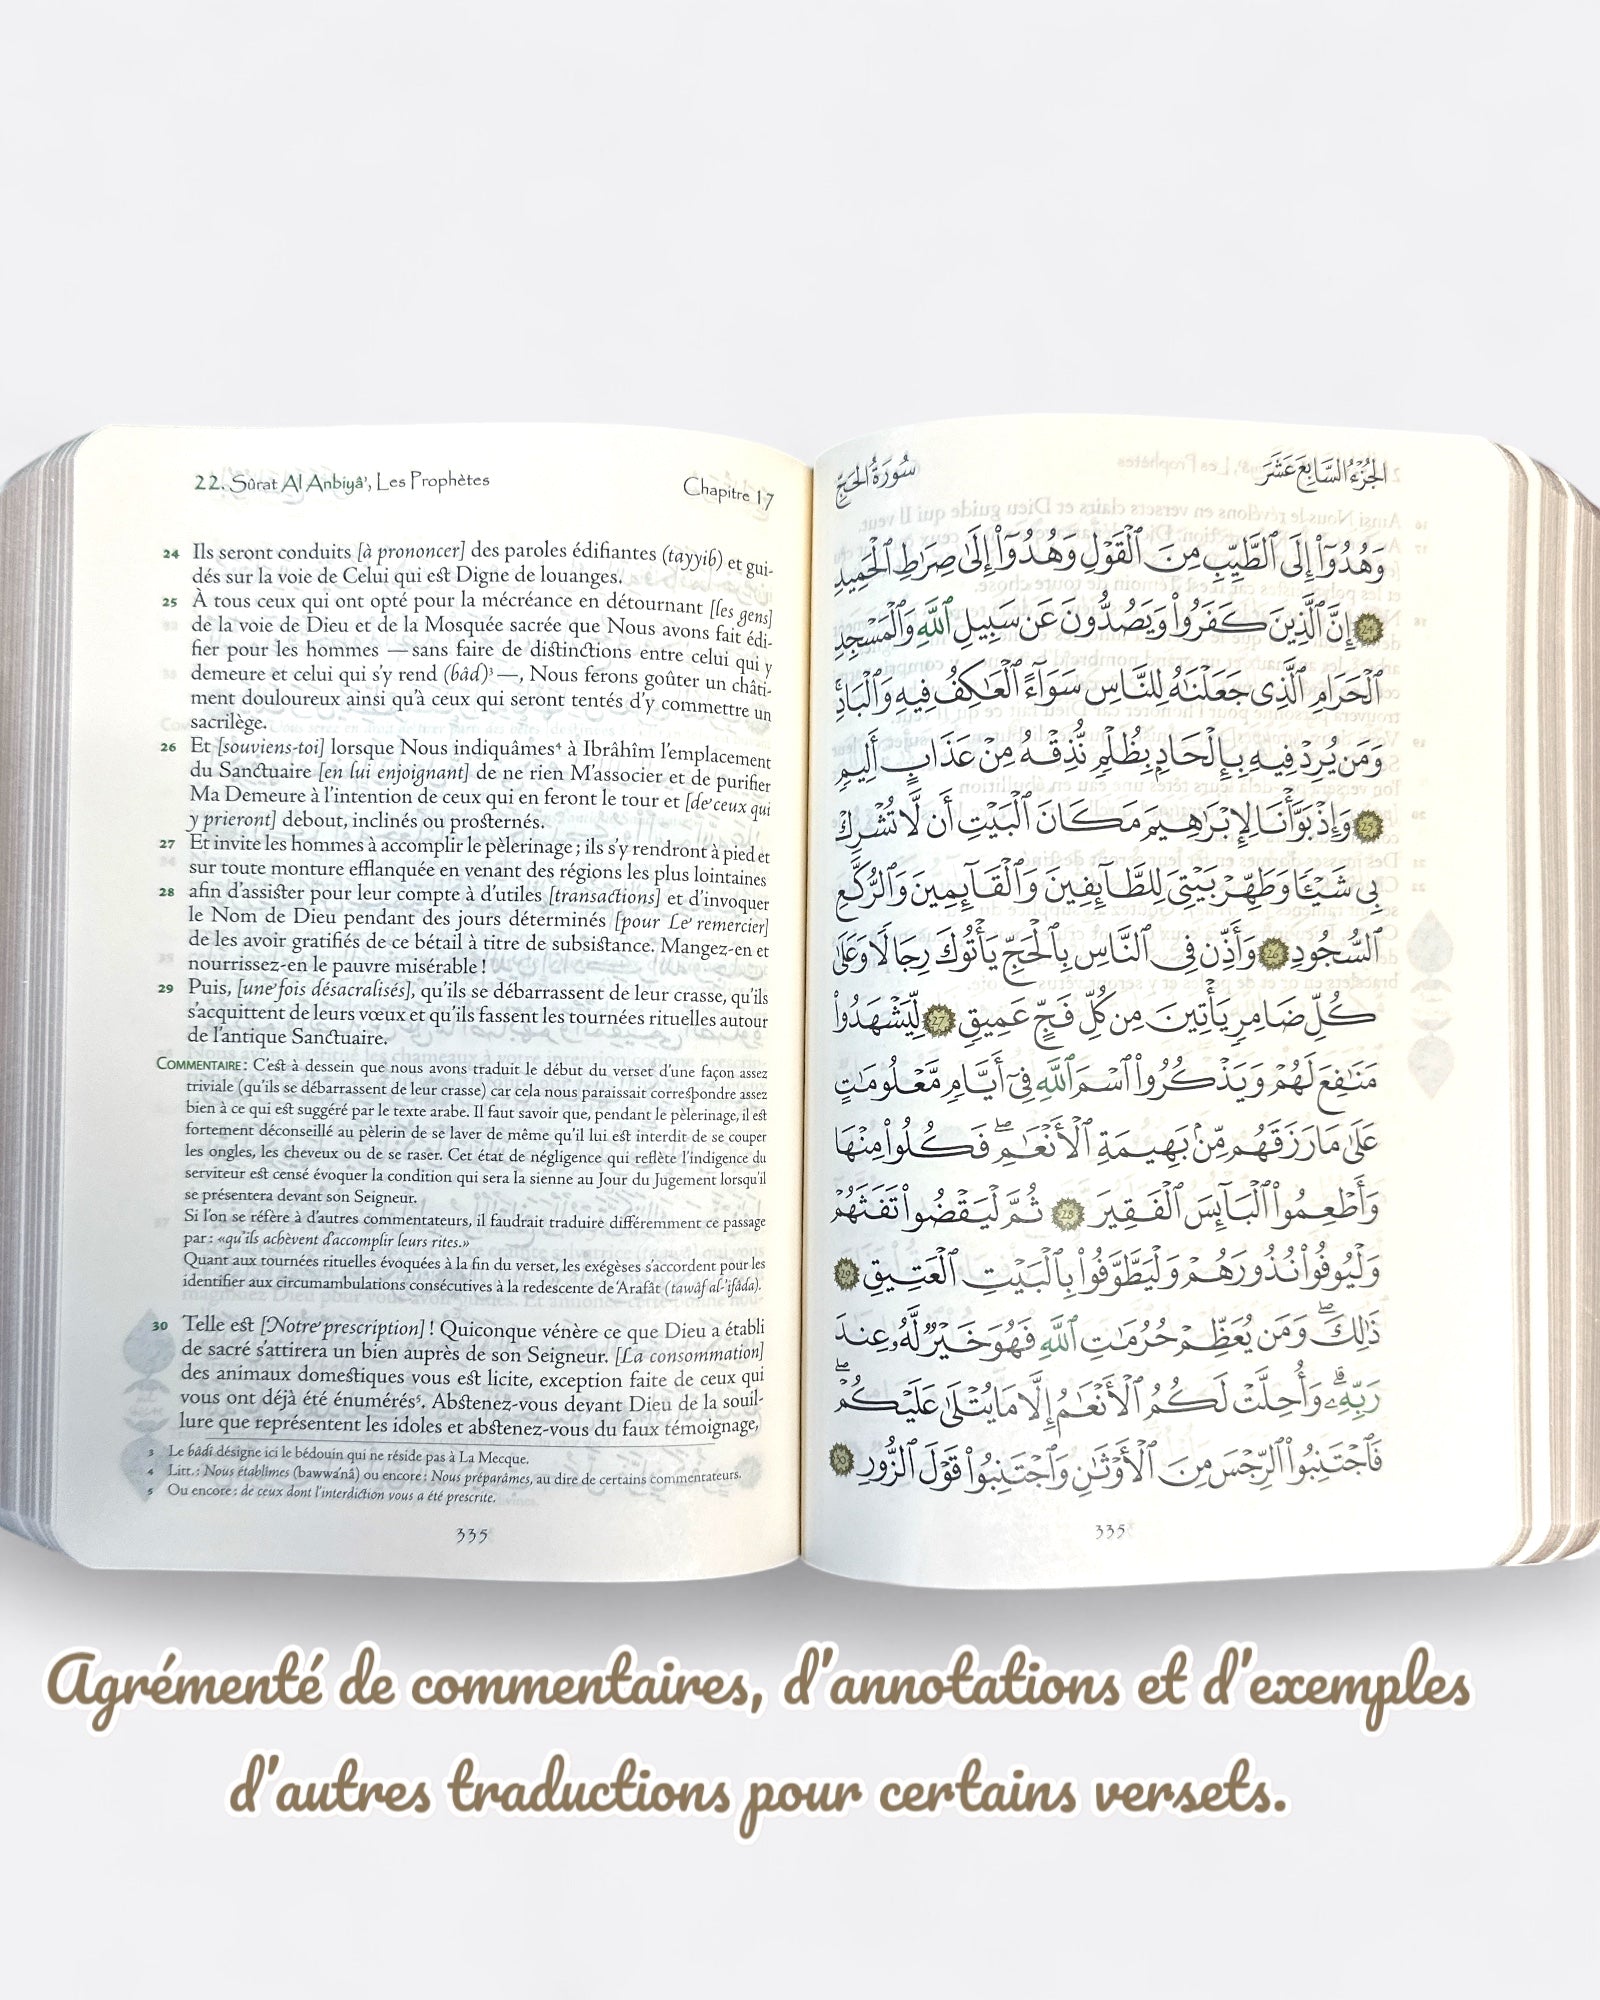 22. Sûrat Al Anbiyâ', Les Prophètes
Chapitre 17
24 Ils seront conduits [à prononcer] des paroles édifiantes (tayyib) et gui-
dés sur la voie de Celui qui est Digne de louanges.
25 À tous ceux qui ont opté pour la mécréance en détournant [les gens]
de la voie de Dieu et de la Mosquée sacrée que Nous avons fait édi-
fier pour les hommes — sans faire de distinctions entre celui qui y
demeure et celui qui s'y rend (bâd)³ —, Nous ferons goûter un châti-
ment douloureux ainsi qu'à ceux qui seront tentés d'y commettre un
sacrilège.
26 Et [souviens-toi] lorsque Nous indiquâmes⁴ à Ibrâhîm l'emplacement
du Sanctuaire [en lui enjoignant] de ne rien M'associer et de purifier
Ma Demeure à l'intention de ceux qui en feront le tour et [de ceux qui
y prieront] debout, inclinés ou prosternés.
27 Et invite les hommes à accomplir le pèlerinage ; ils s'y rendront à pied et
sur toute monture efflanquée en venant des régions les plus lointaines
28 afin d'assister pour leur compte à d'utiles [transactions] et d'invoquer
le Nom de Dieu pendant des jours déterminés [pour Le remercier]
de les avoir gratifiés de ce bétail à titre de subsistance. Mangez-en et
nourrissez-en le pauvre misérable !
29 Puis, [une fois désacralisés], qu'ils se débarrassent de leur crasse, qu'ils
s'acquittent de leurs vœux et qu'ils fassent les tournées rituelles autour
de l'antique Sanctuaire.
COMMENTAIRE : C'est à dessein que nous avons traduit le début du verset d'une façon assez
triviale (qu'ils se débarrassent de leur crasse) car cela nous paraissait correspondre assez
bien à ce qui est suggéré par le texte arabe. Il faut savoir que, pendant le pèlerinage, il est
fortement déconseillé au pèlerin de se laver de même qu'il lui est interdit de se couper
les ongles, les cheveux ou de se raser. Cet état de négligence qui reflète l'indigence du
serviteur est censé évoquer la condition qui sera la sienne au Jour du Jugement lorsqu'il
se présentera devant son Seigneur.
Si l'on se réfère à d'autres commentateurs, il faudrait traduire différemment ce passage
par : «qu'ils achèvent d'accomplir leurs rites.»
Quant aux tournées rituelles évoquées à la fin du verset, les exégèses s'accordent pour les
identifier aux circumambulations consécutives à la redescente de 'Arafât (tawâf al-'ifâda).
30 Telle est [Notre prescription] ! Quiconque vénère ce que Dieu a établi
de sacré s'attirera un bien auprès de son Seigneur. [La consommation]
des animaux domestiques vous est licite, exception faite de ceux qui
vous ont déjà été énumérés⁵. Abstenez-vous devant Dieu de la souil-
lure que représentent les idoles et abstenez-vous du faux témoignage,
3 Le bâdi désigne ici le bédouin qui ne réside pas à La Mecque.
4 Litt. : Nous établîmes (bawwa'nâ) ou encore : Nous préparâmes, au dire de certains commentateurs.
5 Ou encore : de ceux dont l'interdiction vous a été prescrite.
335
الجُزْءُ السَّابِعَ عَشَرَ
سُورَةُ الحَجِّ
وَهُدُوٓاْ إِلَى ٱلطَّيِّبِ مِنَ ٱلْقَوْلِ وَهُدُوٓاْ إِلَىٰ صِرَٰطِ ٱلْحَمِيدِ
٢٤ إِنَّ ٱلَّذِينَ كَفَرُواْ وَيَصُدُّونَ عَن سَبِيلِ ٱللَّهِ وَٱلْمَسْجِدِ
ٱلْحَرَامِ ٱلَّذِى جَعَلْنَٰهُ لِلنَّاسِ سَوَآءً ٱلْعَٰكِفُ فِيهِ وَٱلْبَادِ
وَمَن يُرِدْ فِيهِ بِإِلْحَادٍۭ بِظُلْمٍ نُّذِقْهُ مِنْ عَذَابٍ أَلِيمٍ
٢٥ وَإِذْ بَوَّأْنَا لِإِبْرَٰهِيمَ مَكَانَ ٱلْبَيْتِ أَن لَّا تُشْرِكْ
بِى شَيْـًٔا وَطَهِّرْ بَيْتِىَ لِلطَّآئِفِينَ وَٱلْقَآئِمِينَ وَٱلرُّكَّعِ
ٱلسُّجُودِ ٢٦ وَأَذِّن فِى ٱلنَّاسِ بِٱلْحَجِّ يَأْتُوكَ رِجَالًا وَعَلَىٰ
كُلِّ ضَامِرٍ يَأْتِينَ مِن كُلِّ فَجٍّ عَمِيقٍ ٢٧ لِّيَشْهَدُواْ
مَنَٰفِعَ لَهُمْ وَيَذْكُرُواْ ٱسْمَ ٱللَّهِ فِىٓ أَيَّامٍ مَّعْلُومَٰتٍ
عَلَىٰ مَا رَزَقَهُم مِّنۢ بَهِيمَةِ ٱلْأَنْعَٰمِ ۖ فَكُلُواْ مِنْهَا
وَأَطْعِمُواْ ٱلْبَآئِسَ ٱلْفَقِيرَ ٢٨ ثُمَّ لْيَقْضُواْ تَفَثَهُمْ
وَلْيُوفُواْ نُذُورَهُمْ وَلْيَطَّوَّفُواْ بِٱلْبَيْتِ ٱلْعَتِيقِ ٢٩
ذَٰلِكَ ۖ وَمَن يُعَظِّمْ حُرُمَٰتِ ٱللَّهِ فَهُوَ خَيْرٌ لَّهُۥ عِندَ
رَبِّهِۦ ۗ وَأُحِلَّتْ لَكُمُ ٱلْأَنْعَٰمُ إِلَّا مَا يُتْلَىٰ عَلَيْكُمْ ۖ
فَٱجْتَنِبُواْ ٱلرِّجْسَ مِنَ ٱلْأَوْثَٰنِ وَٱجْتَنِبُواْ قَوْلَ ٱلزُّورِ ٣٠
335
Agrémenté de commentaires, d'annotations et d'exemples
d'autres traductions pour certains versets.